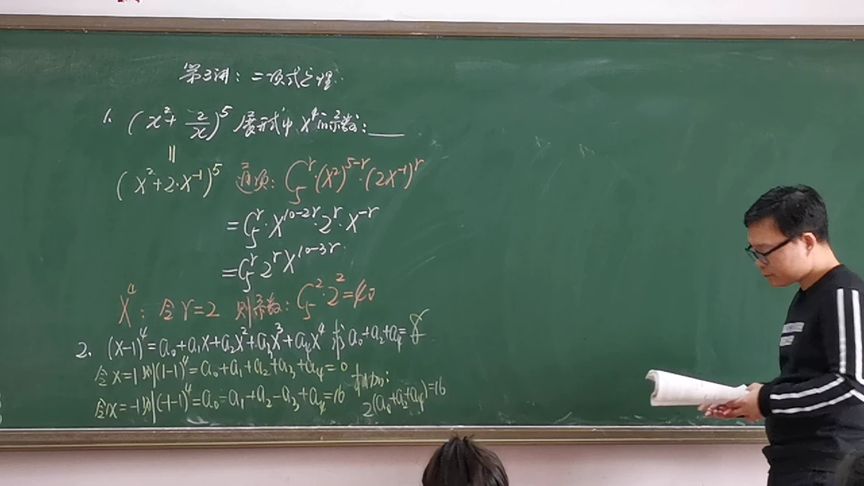 第3讲：二项式定理.
1. (x²+2/x)⁵展开式中x⁴的系数：____
=
(x²+2·x⁻¹)⁵ 通项：C₅ʳ·(x²)⁵⁻ʳ·(2x⁻¹)ʳ
=C₅ʳ·x¹⁰⁻²ʳ·2ʳ·x⁻ʳ
=C₅ʳ2ʳx¹⁰⁻³ʳ
x⁴：令r=2 则系数：C₅²·2²=40
2. (x-1)⁴=a₀+a₁x+a₂x²+a₃x³+a₄x⁴,求a₀+a₂+a₄=8
令x=1则(1-1)⁴=a₀+a₁+a₂+a₃+a₄=0 相加：
令x=-1则(-1-1)⁴=a₀-a₁+a₂-a₃+a₄=16 2(a₀+a₂+a₄)=16